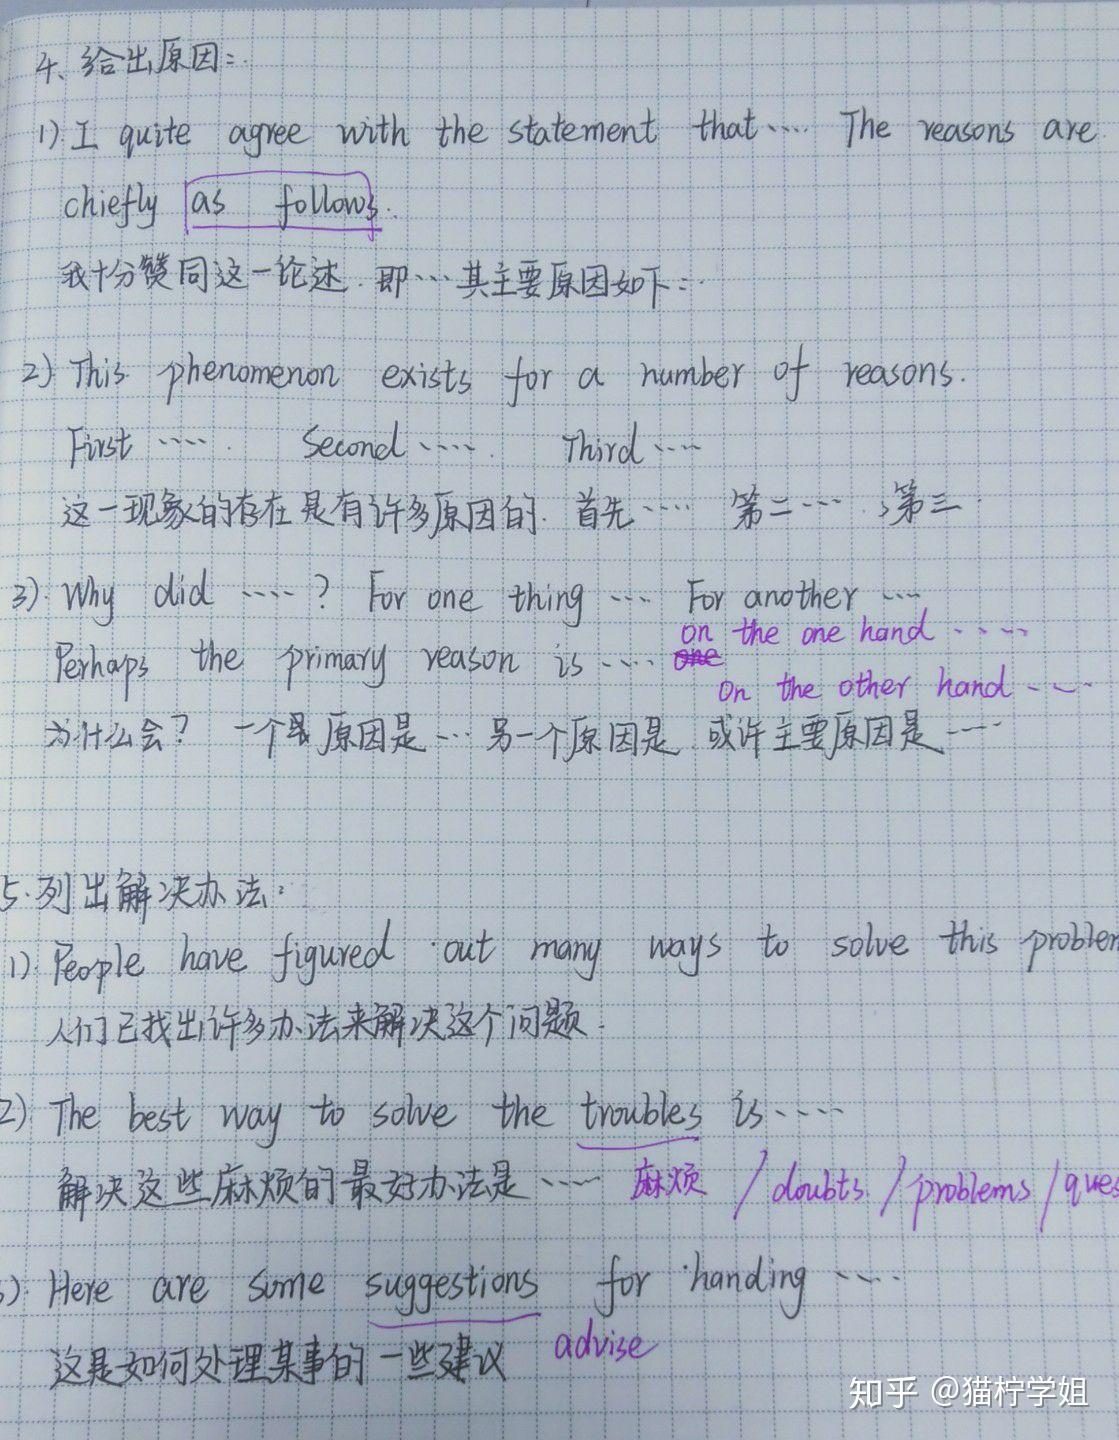 4、给出原因：
1) I quite agree with the statement that .... The reasons are
chiefly as follows.
我十分赞同这一论述. 即 ... 其主要原因如下：
2) This phenomenon exists for a number of reasons.
First .... Second .... Third ....
这一现象的存在是有许多原因的. 首先 .... 第二 .... 、第三.
3). Why did ....? For one thing ... For another ....
on the one hand .....
Perhaps the primary reason is ....
on the other hand ...
为什么会？ 一个原因是 ... 另一个原因是 或许主要原因是 ....
5.列出解决办法：
1) People have figured out many ways to solve this
人们已找出许多办法来解决这个问题.
2) The best way to solve the troubles is ....
解决这些麻烦的最好办法是 .... 麻烦 / doubts. / problems /
). Here are some suggestions for handing ....
advise
这是如何处理某事的一些建议
知乎 @猫柠学姐